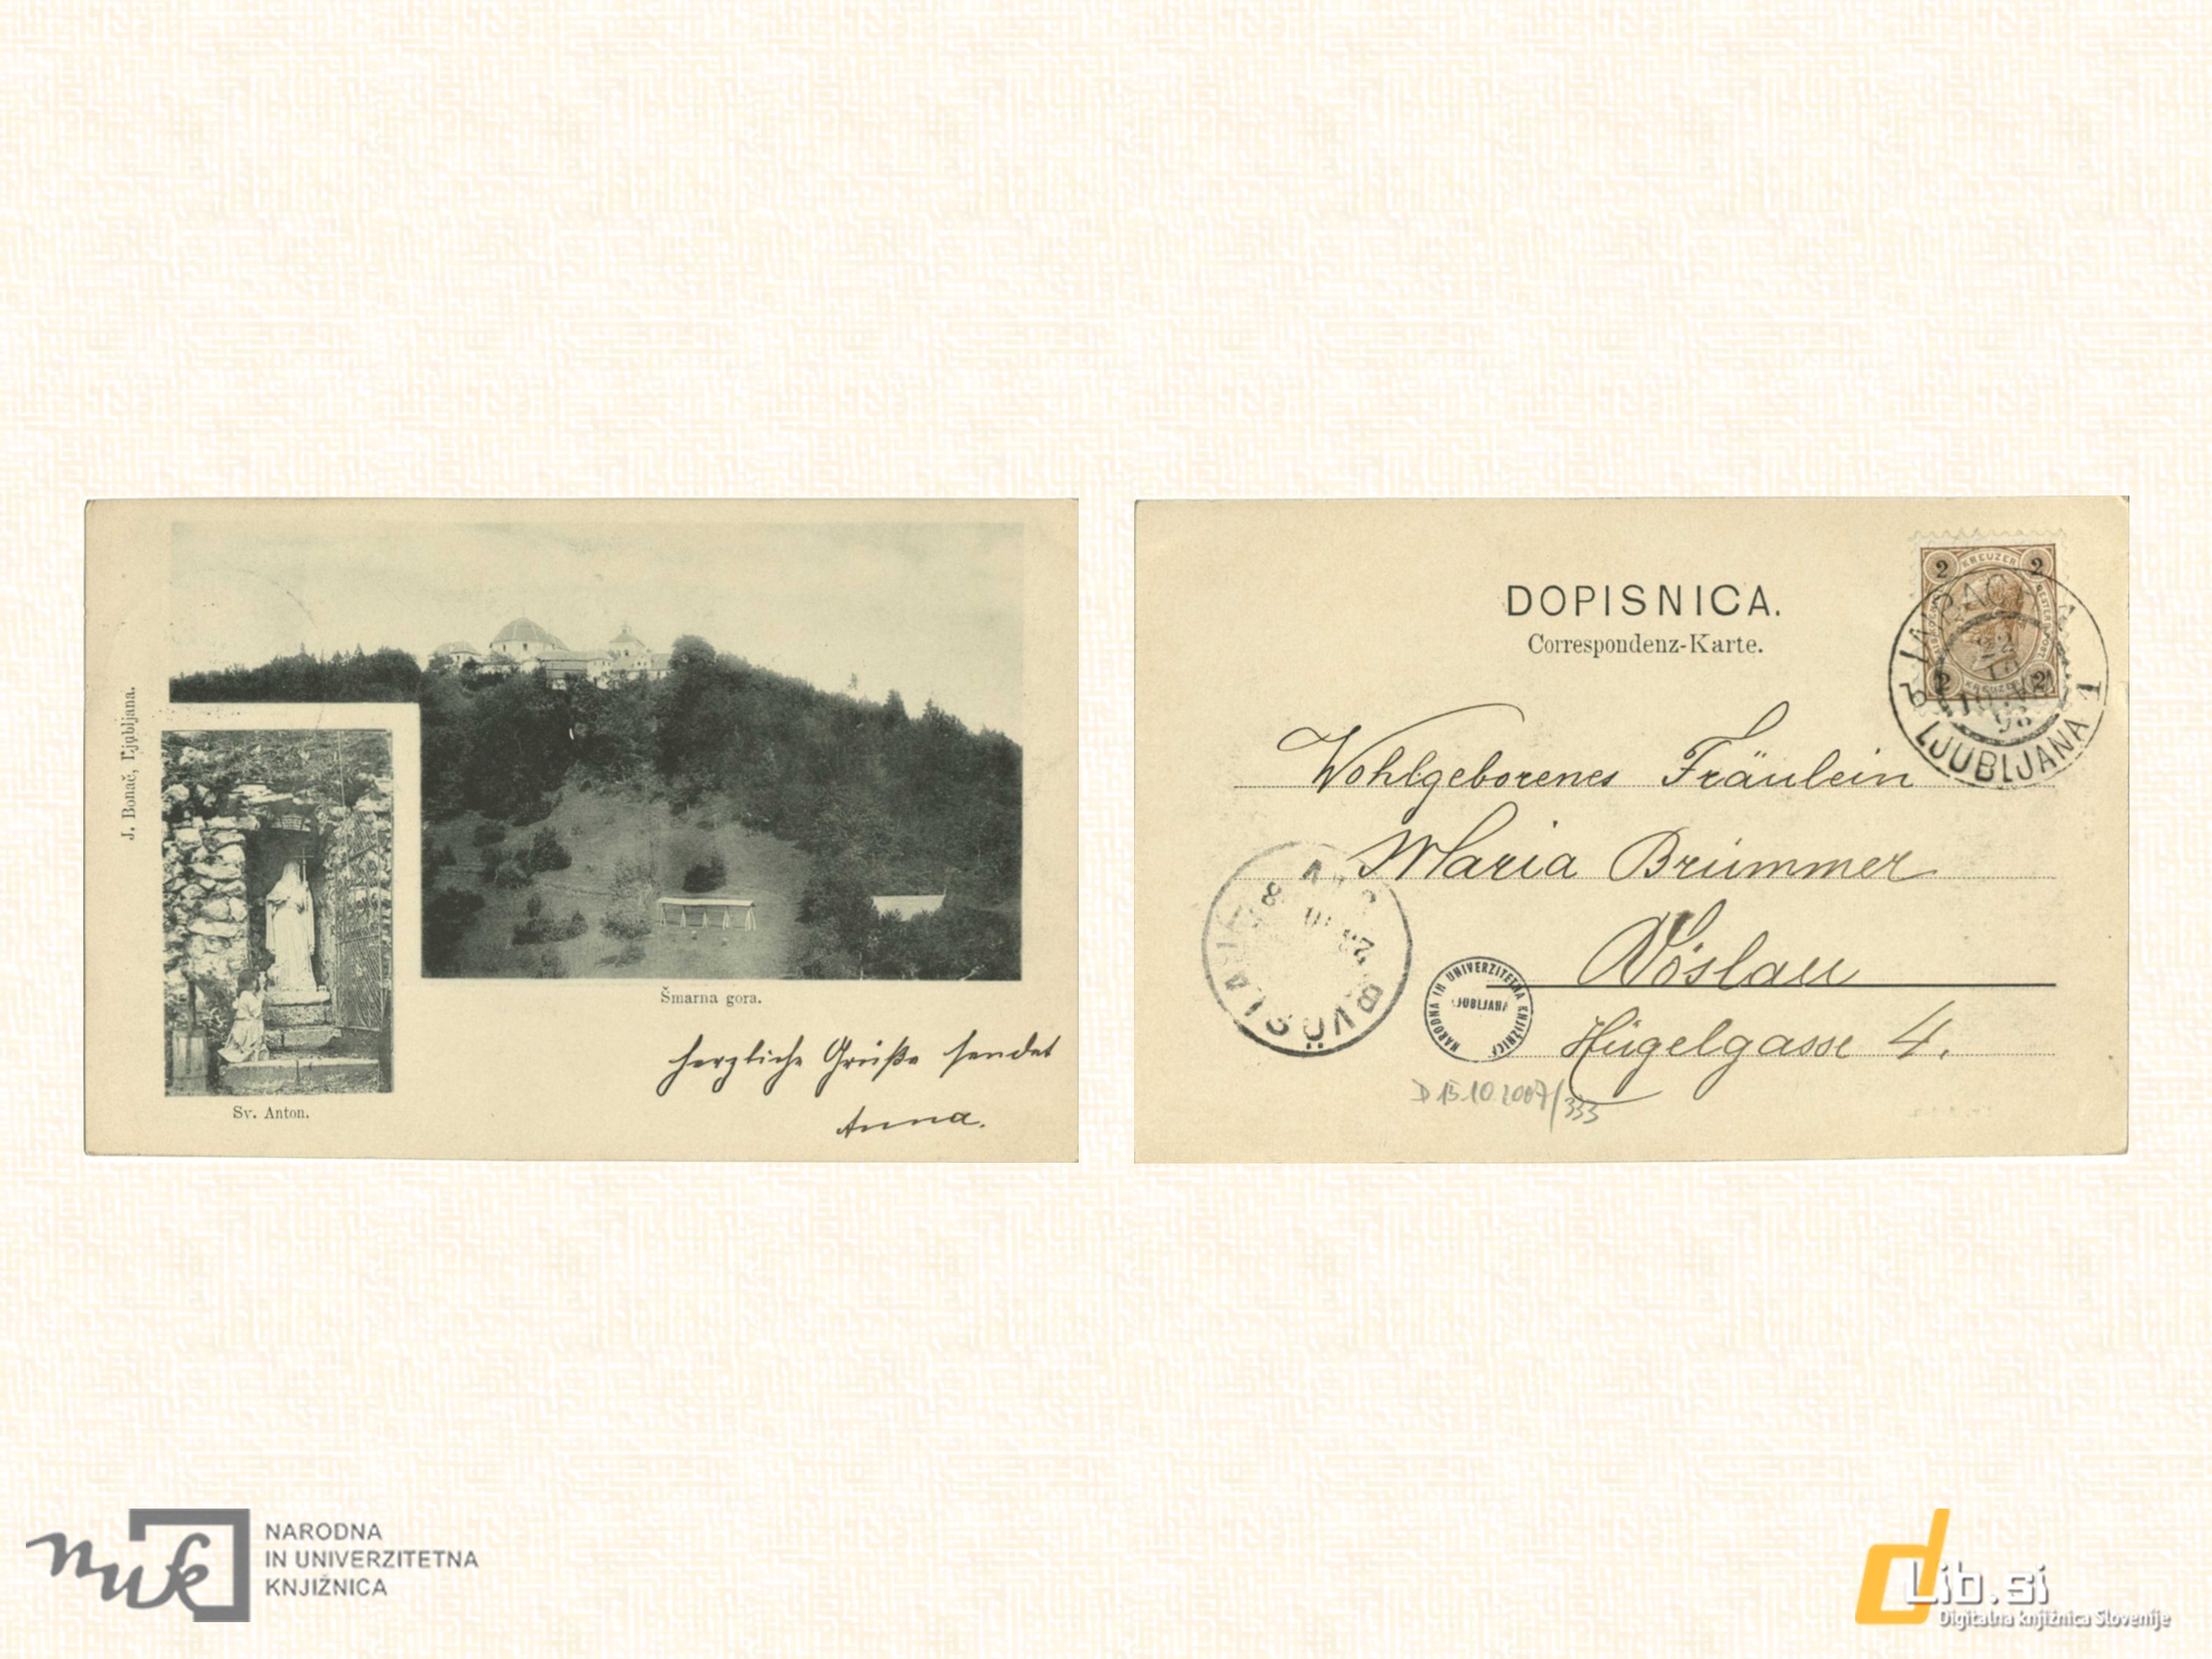 J. Bonač, Ljubljana.
Šmarna gora.
Sv. Anton.
herzliche Grüße sendet
Anna.
DOPISNICA.
Correspondenz-Karte.
2 KREUZER 2
2 KREUZER 2
LAIBACH
22
10
98
LJUBLJANA 1
Wohlgeborenes Fräulein
Maria Brümmer
Vöslau
Hügelgasse 4.
VÖSLAU
NARODNA IN UNIVERZITETNA KNJIŽNICA
LJUBLJANA
D 15.10.2007/333
nuk
NARODNA
IN UNIVERZITETNA
KNJIŽNICA
dLib.si
Digitalna knjižnica Slovenije